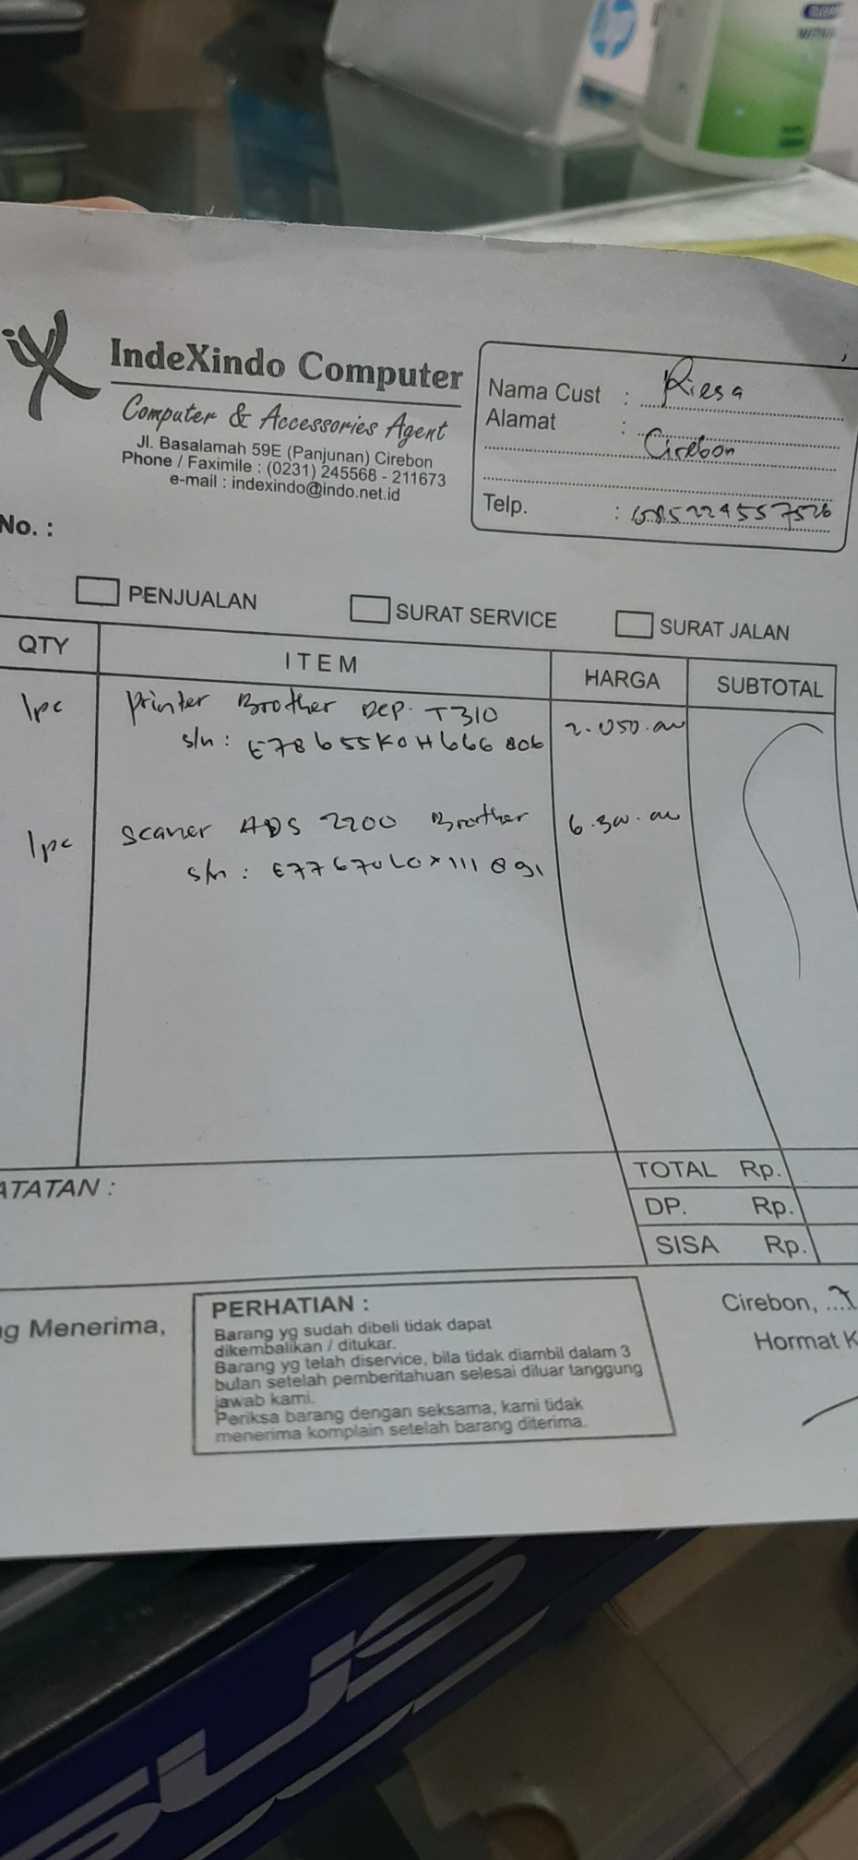 hp
IndeXindo Computer
Computer & Accessories Agent
Jl. Basalamah 59E (Panjunan) Cirebon
Phone / Faximile : (0231) 245568 - 211673
e-mail : indexindo@indo.net.id
Nama Cust : Riesa
Alamat : Cirebon
Telp. : 085224557526
No. :
PENJUALAN SURAT SERVICE SURAT JALAN
QTY ITEM HARGA SUBTOTAL
1pc Printer Brother DCP. T310 2.050.000
s/n : E78655K0H666806
1pc Scaner ADS 2200 Brother 6.300.000
s/n :
ATATAN :
TOTAL Rp.
DP. Rp.
SISA Rp.
g Menerima,
PERHATIAN :
Barang yg sudah dibeli tidak dapat
dikembalikan / ditukar.
Barang yg telah diservice, bila tidak diambil dalam 3
bulan setelah pemberitahuan selesai diluar tanggung
jawab kami.
Periksa barang dengan seksama, kami tidak
menerima komplain setelah barang diterima.
Cirebon, ...
Hormat K
SUS